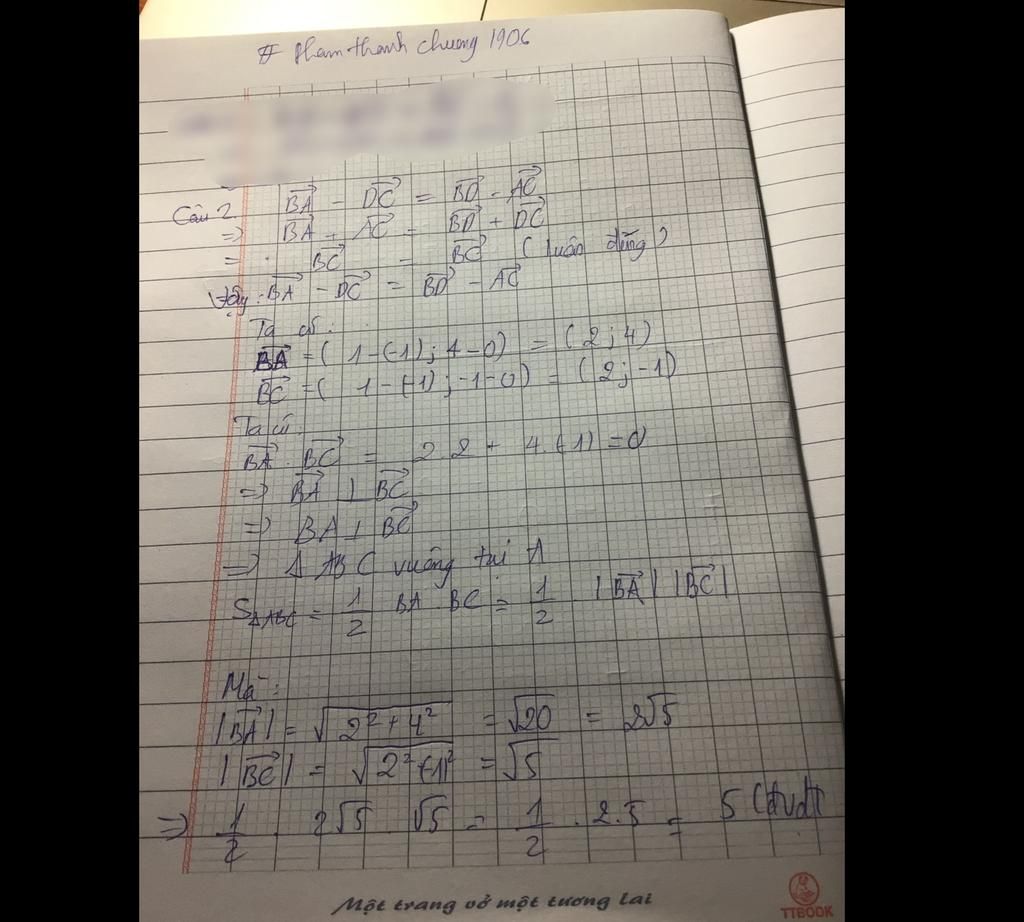 # Pham thanh chương 1906
Câu 2 \overrightarrow{BA} - \overrightarrow{DC} = \overrightarrow{BD} - \overrightarrow{AC}
=> \overrightarrow{BA} + \overrightarrow{AC} = \overrightarrow{BD} + \overrightarrow{DC}
= . \overrightarrow{BC} = \overrightarrow{BC} (luôn đúng)
Vậy: \overrightarrow{BA} - \overrightarrow{DC} = \overrightarrow{BD} - \overrightarrow{AC}
Ta có:
\overrightarrow{BA} = (1-(-1); 4-0) = (2; 4)
\overrightarrow{BC} = (1-(-1); -1-0) = (2; -1)
Ta có:
\overrightarrow{BA} . \overrightarrow{BC} = 2.2 + 4.(-1) = 0
=> \overrightarrow{BA} ⊥ \overrightarrow{BC}
=> BA ⊥ \overrightarrow{BC}
=> Δ ABC vuông tại A
S_{ΔABC} = \frac{1}{2} BA . BC = \frac{1}{2} . |\overrightarrow{BA}| |\overrightarrow{BC}|
Mà:
|\overrightarrow{BA}| = \sqrt{2²+4²} = \sqrt{20} = 2\sqrt{5}
|\overrightarrow{BC}| = \sqrt{2²+(-1)²} = \sqrt{5}
=> \frac{1}{2} . 2\sqrt{5} . \sqrt{5} = \frac{1}{2} . 2.5 = 5 (đvdt)
Một trang vở một tương lai
TTBOOK